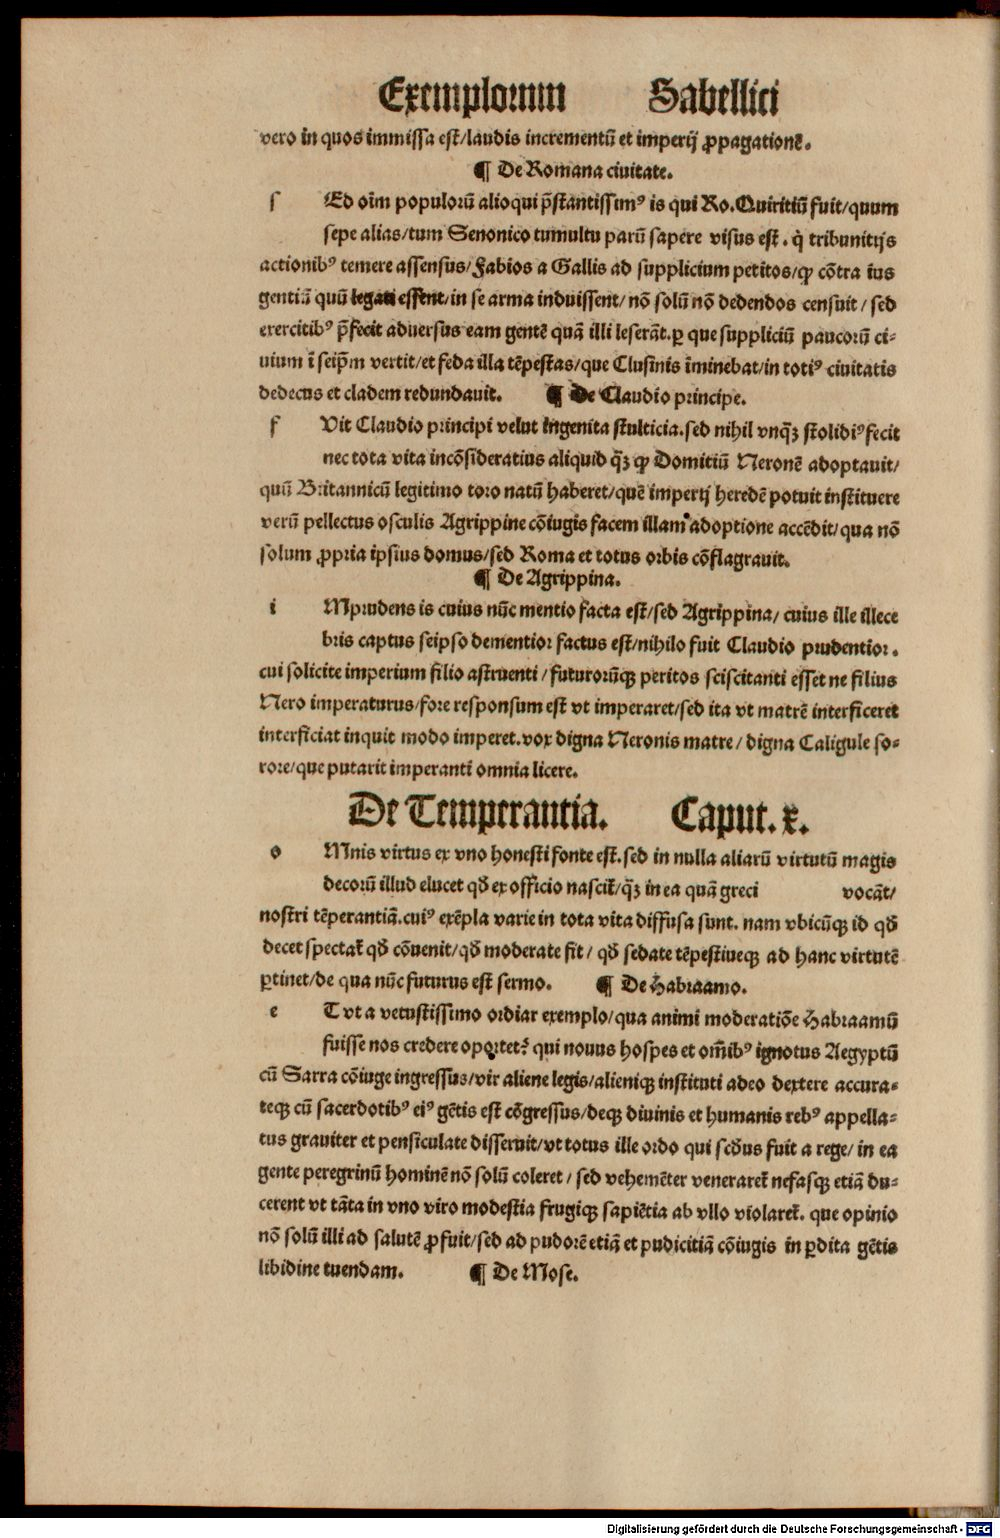 Exemplorum Sabellici
vero in quos immissa est/laudis incrementū et imperij ꝓpagationē.
¶ De Romana ciuitate.
s Ed oīm populorū alioqui p̄stantissimꝰ is qui Ro. Quiritiū fuit/quum
sepe alias/tum Senonico tumultu parū sapere visus est. q̇ tribunitijs
actionibꝰ temere assensus/Fabios a Gallis ad supplicium petitos/ꝙ cōtra ius
gentiū quū legati essent/in se arma induissent/nō solū nō dedendos censuit/sed
exercitibꝰ p̄fecit aduersus eam gentē quā illi leserāt. ꝑ que suppliciū paucorū ci-
uium ī seip̄m vertit/et feda illa tēpestas/que Clusinis īminebat/in totiꝰ ciuitatis
dedecus et cladem redundauit. ¶ De Claudio principe.
f Uit Claudio principi velut ingenita stulticia. sed nihil vnqꝫ stolidiꝰ fecit
nec tota vita incōsideratius aliquid qꝫ ꝙ Domitiū Neronē adoptauit/
quū Britannicū legitimo toro natū haberet/quē imperij heredē potuit instituere
verū pellectus osculis Agrippine cōiugis facem illam adoptione accēdit/qua nō
solum ꝓpria ipsius domus/sed Roma et totus orbis cōflagrauit.
¶ De Agrippina.
i Mprudens is cuius nūc mentio facta est/sed Agrippina/cuius ille illece
bris captus seipso dementior factus est/nihilo fuit Claudio prudentior.
cui solicite imperium filio astruenti/futurorūqꝫ peritos sciscitanti esset ne filius
Nero imperaturus/fore responsum est vt imperaret/sed ita vt matrē interficeret
interficiat inquit modo imperet. vox digna Neronis matre/digna Caligule so-
rore/que putarit imperanti omnia licere.
De Temperantia. Caput. x.
o Mnis virtus ex vno honesti fonte est. sed in nulla aliarū virtutū magis
decorū illud elucet qd̄ ex officio nascit᷑/qꝫ in ea quā greci vocāt/
nostri tēperantiā. cuiꝰ exēpla varie in tota vita diffusa sunt. nam vbicūqꝫ id qd̄
decet spectat᷑ qd̄ cōuenit/qd̄ moderate fit/qd̄ sedate tēpestiueqꝫ ad hanc virtutē
ꝑtinet/de qua nūc futurus est sermo. ¶ De Habraamo.
e T vt a vetustissimo ordiar exemplo/qua animi moderatiōe Habraamū
fuisse nos credere oportet? qui nouus hospes et om̄ibꝰ ignotus Aegyptū
cū Sarra cōiuge ingressus/vir aliene legis/alieniqꝫ instituti adeo dextere accura-
teqꝫ cū sacerdotibꝰ eiꝰ gētis est cōgressus/deqꝫ diuinis et humanis rebꝰ appella-
tus grauiter et pensiculate disseruit/vt totus ille ordo qui scd̄us fuit a rege/in ea
gente peregrinū hominē nō solū coleret/sed vehemēter veneraret᷑ nefasqꝫ etiā du-
cerent vt tāta in vno viro modestia frugiqꝫ sapiētia ab vllo violaret᷑. que opinio
nō solū illi ad salutē ꝓfuit/sed ad pudorē etiā et pudicitiā cōiugis in ꝑdita gētis
libidine tuendam. ¶ De Mose.
Digitalisierung gefördert durch die Deutsche Forschungsgemeinschaft - DFG